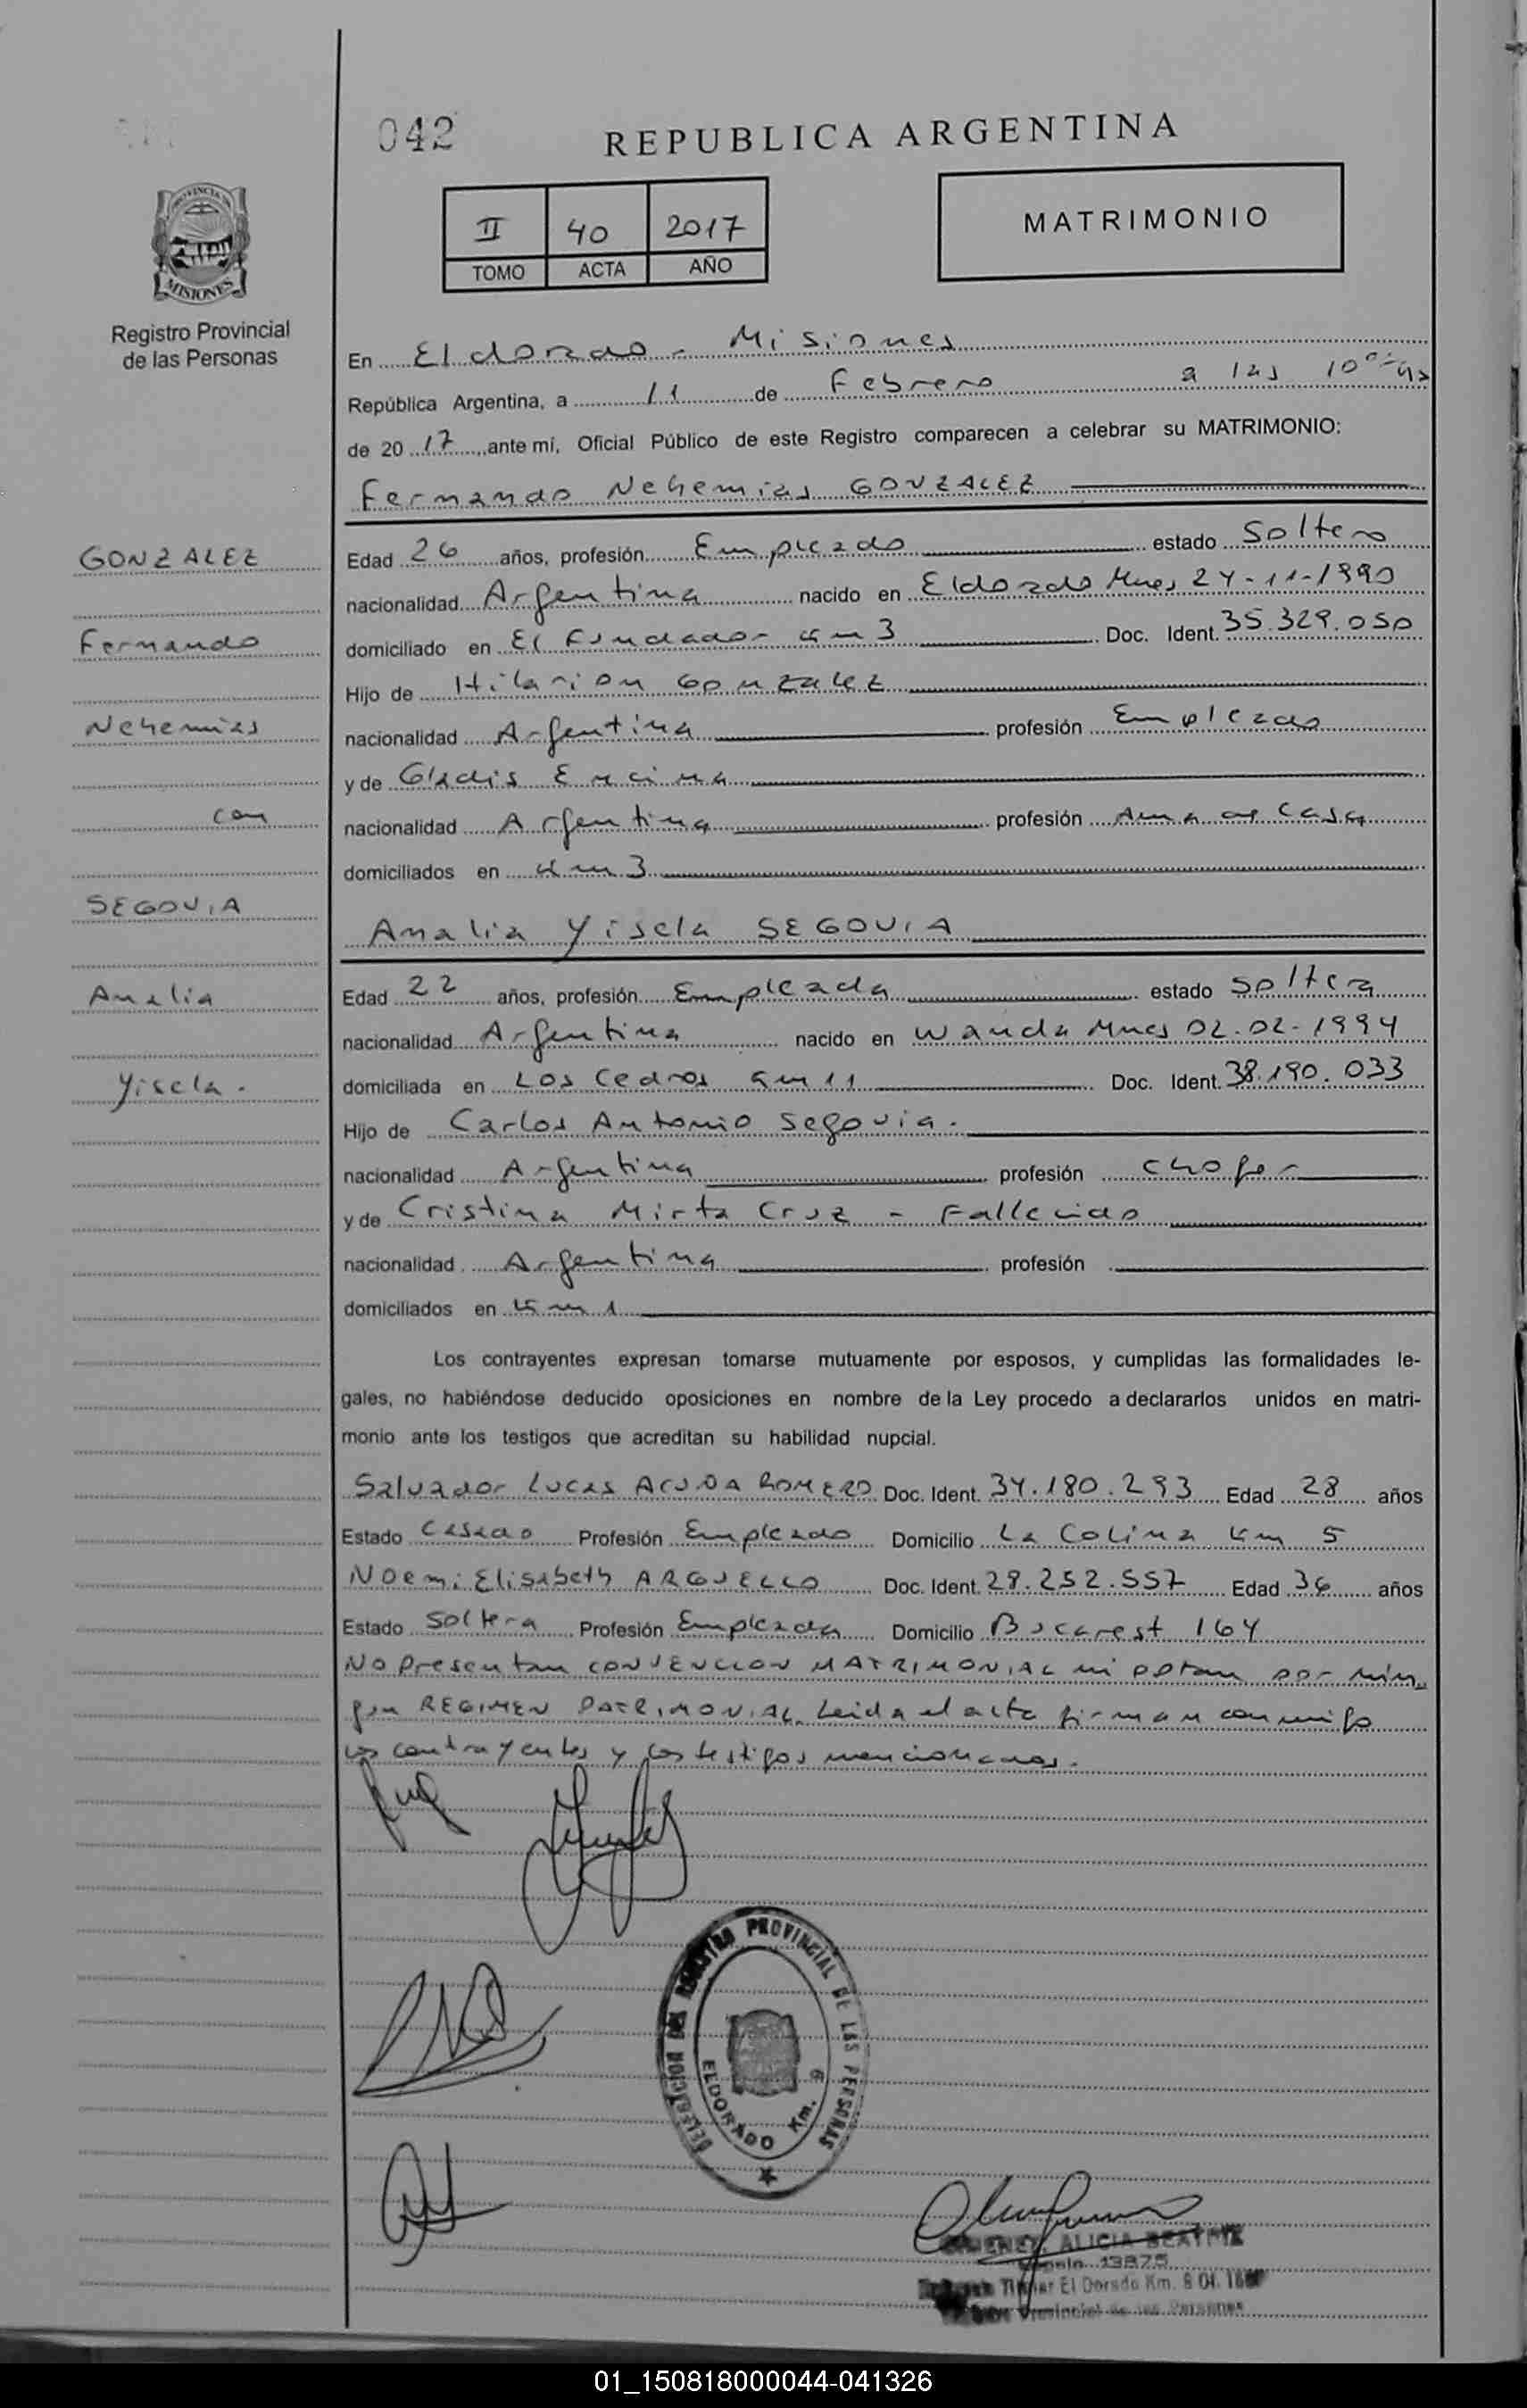 042
REPUBLICA ARGENTINA
II 40 2017
TOMO ACTA AÑO
MATRIMONIO
PROVINCIA DE
MISIONES
Registro Provincial
de las Personas
En Eldorado - Misiones
República Argentina, a 11 de Febrero a las 10
de 2017 ante mí, Oficial Público de este Registro comparecen a celebrar su MATRIMONIO:
Fernando Nehemias GONZALEZ
GONZALEZ
Fernando
Nehemias
con
SEGOVIA
Analia
Yisela.
Edad 26 años, profesión Empleado estado Soltero
nacionalidad Argentina nacido en Eldorado Mnes 24-11-1990
domiciliado en El Fundador Km 3 Doc. Ident. 35.329.050
Hijo de Hilarion Gonzalez
nacionalidad Argentina profesión Empleado
y de Gladis Encina
nacionalidad Argentina profesión Ama de Casa
domiciliados en Km 3
Analia Yisela SEGOVIA
Edad 22 años, profesión Empleada estado Soltera
nacionalidad Argentina nacido en Wanda Mnes 02-02-1994
domiciliada en Los Cedros Km 11 Doc. Ident. 38.190.033
Hijo de Carlos Antonio Segovia.
nacionalidad Argentina profesión Chofer
y de Cristina Mirta Cruz - Fallecido
nacionalidad Argentina profesión
domiciliados en Km 1
Los contrayentes expresan tomarse mutuamente por esposos, y cumplidas las formalidades le-
gales, no habiéndose deducido oposiciones en nombre de la Ley procedo a declararlos unidos en matri-
monio ante los testigos que acreditan su habilidad nupcial.
Salvador Lucas ACUÑA ROMERO Doc. Ident. 34.180.293 Edad 28 años
Estado Casado Profesión Empleado Domicilio La Colina Km 5
Noemi Elisabeth ARGUELLO Doc. Ident. 28.252.557 Edad 36 años
Estado Soltera Profesión Empleada Domicilio Bucarest 164
No presentan CONVENCION MATRIMONIAL ni optan por nin
gun REGIMEN PATRIMONIAL. Leida el acta firman conmigo
los contrayentes y los testigos mencionados.
DELEGACION DEL REGISTRO PROVINCIAL DE LAS PERSONAS
ELDORADO Km. 9
GIMENEZ, ALICIA BEATRIZ
13875
El Dorado Km.
Provincial de las Personas
01_150818000044-041326